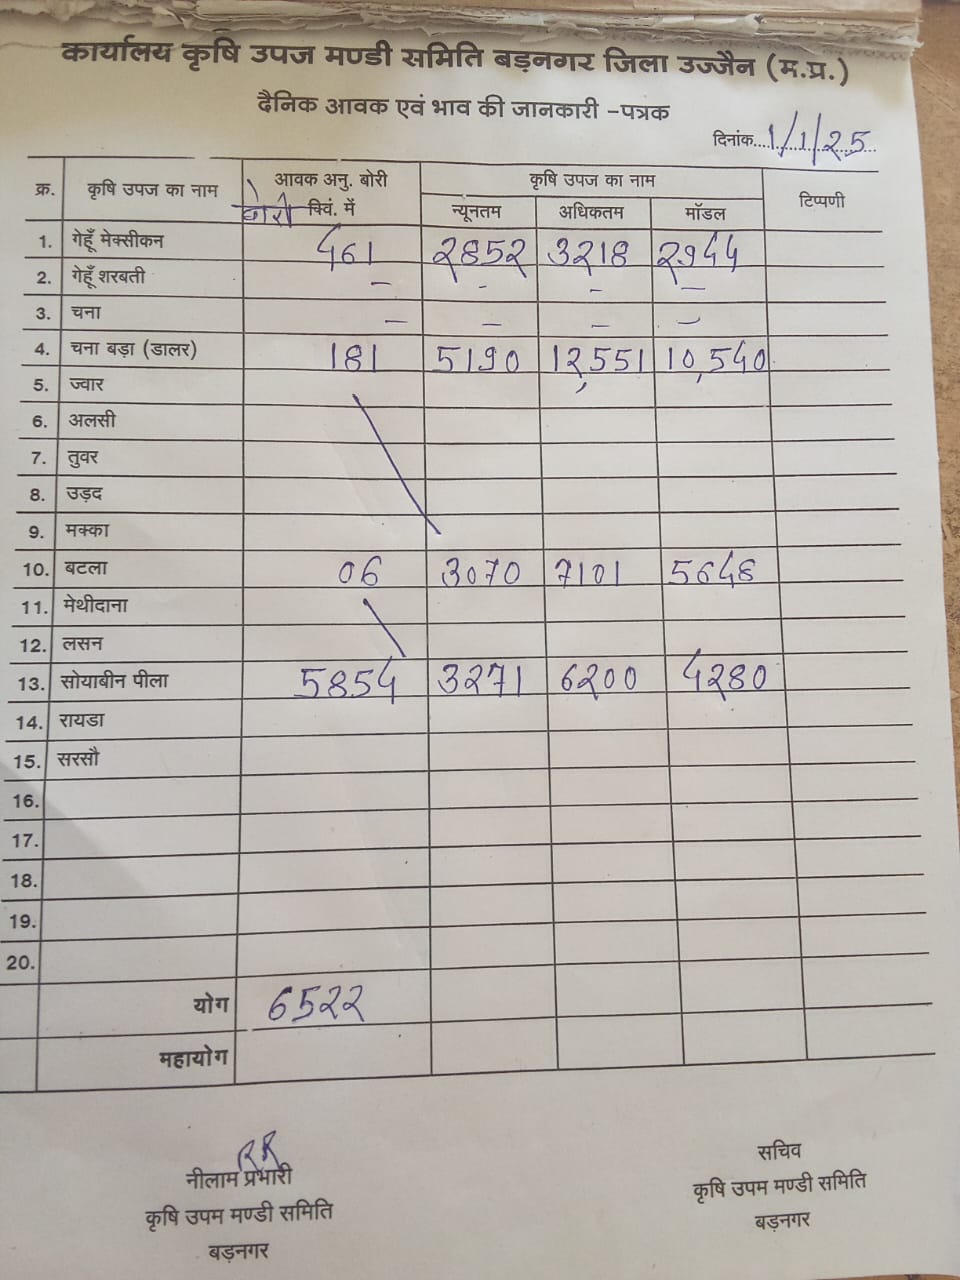 कार्यालय कृषि उपज मण्डी समिति बड़नगर जिला उज्जैन (म.प्र.)
दैनिक आवक एवं भाव की जानकारी -पत्रक
दिनांक....1/1/25
क्र. कृषि उपज का नाम आवक अनु. बोरी क्विं. में कृषि उपज का नाम टिप्पणी
न्यूनतम अधिकतम मॉडल
1. गेहूँ मेक्सीकन 461 2852 3218 2944
2. गेहूँ शरबती - - - -
3. चना - - - -
4. चना बड़ा (डालर) 181 5190 12,551 10,540
5. ज्वार
6. अलसी
7. तुवर
8. उड़द
9. मक्का
10. बटला 06 3070 7101 5648
11. मेथीदाना
12. लसन
13. सोयाबीन पीला 5854 3271 6200 4280
14. रायडा
15. सरसौ
16.
17.
18.
19.
20.
योग 6522
महायोग
नीलाम प्रभारी
कृषि उपम मण्डी समिति
बड़नगर
सचिव
कृषि उपम मण्डी समिति
बड़नगर